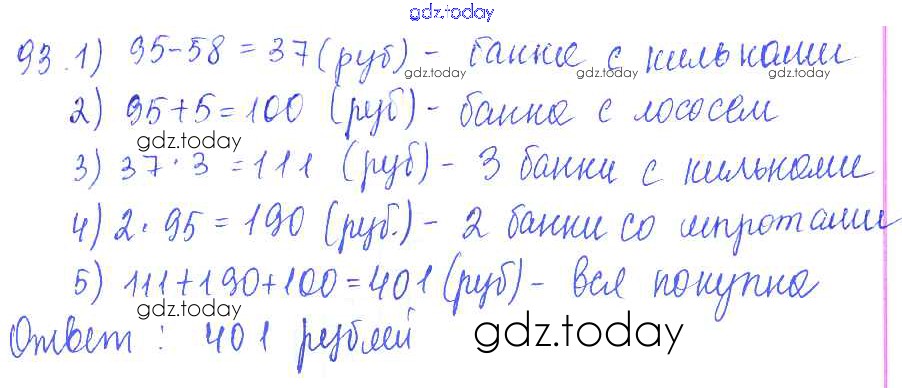 gdz.today
93.1) 95-58=37(руб) - банка с кильками
gdz.today gdz.today gdz.today
2) 95+5=100 (руб) - банка с лососем
gdz.today
3) 37·3=111 (руб) - 3 банки с кильками
4) 2·95=190 (руб.) - 2 банки со шпротами
5) 111+190+100=401(руб) - вся покупка
gdz.today
Ответ: 401 рублей
gdz.today